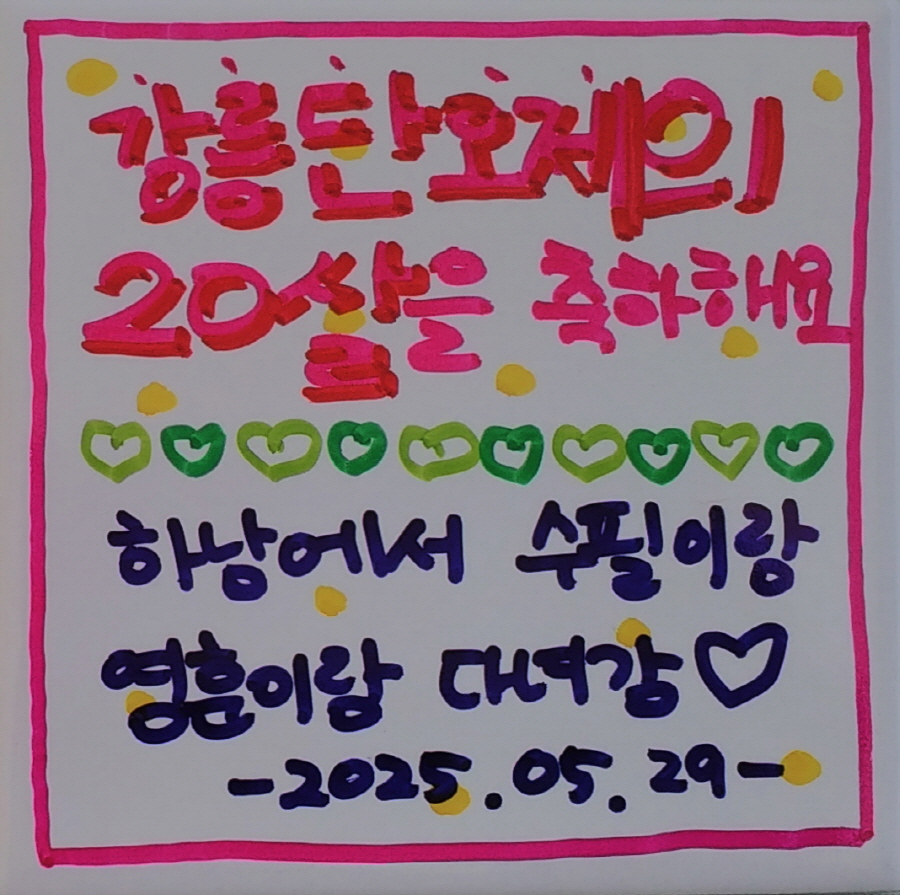 강릉단오제의
20살을 축하해요
하남에서 수필이랑
영훈이랑 대녀감
-2025.05.29-